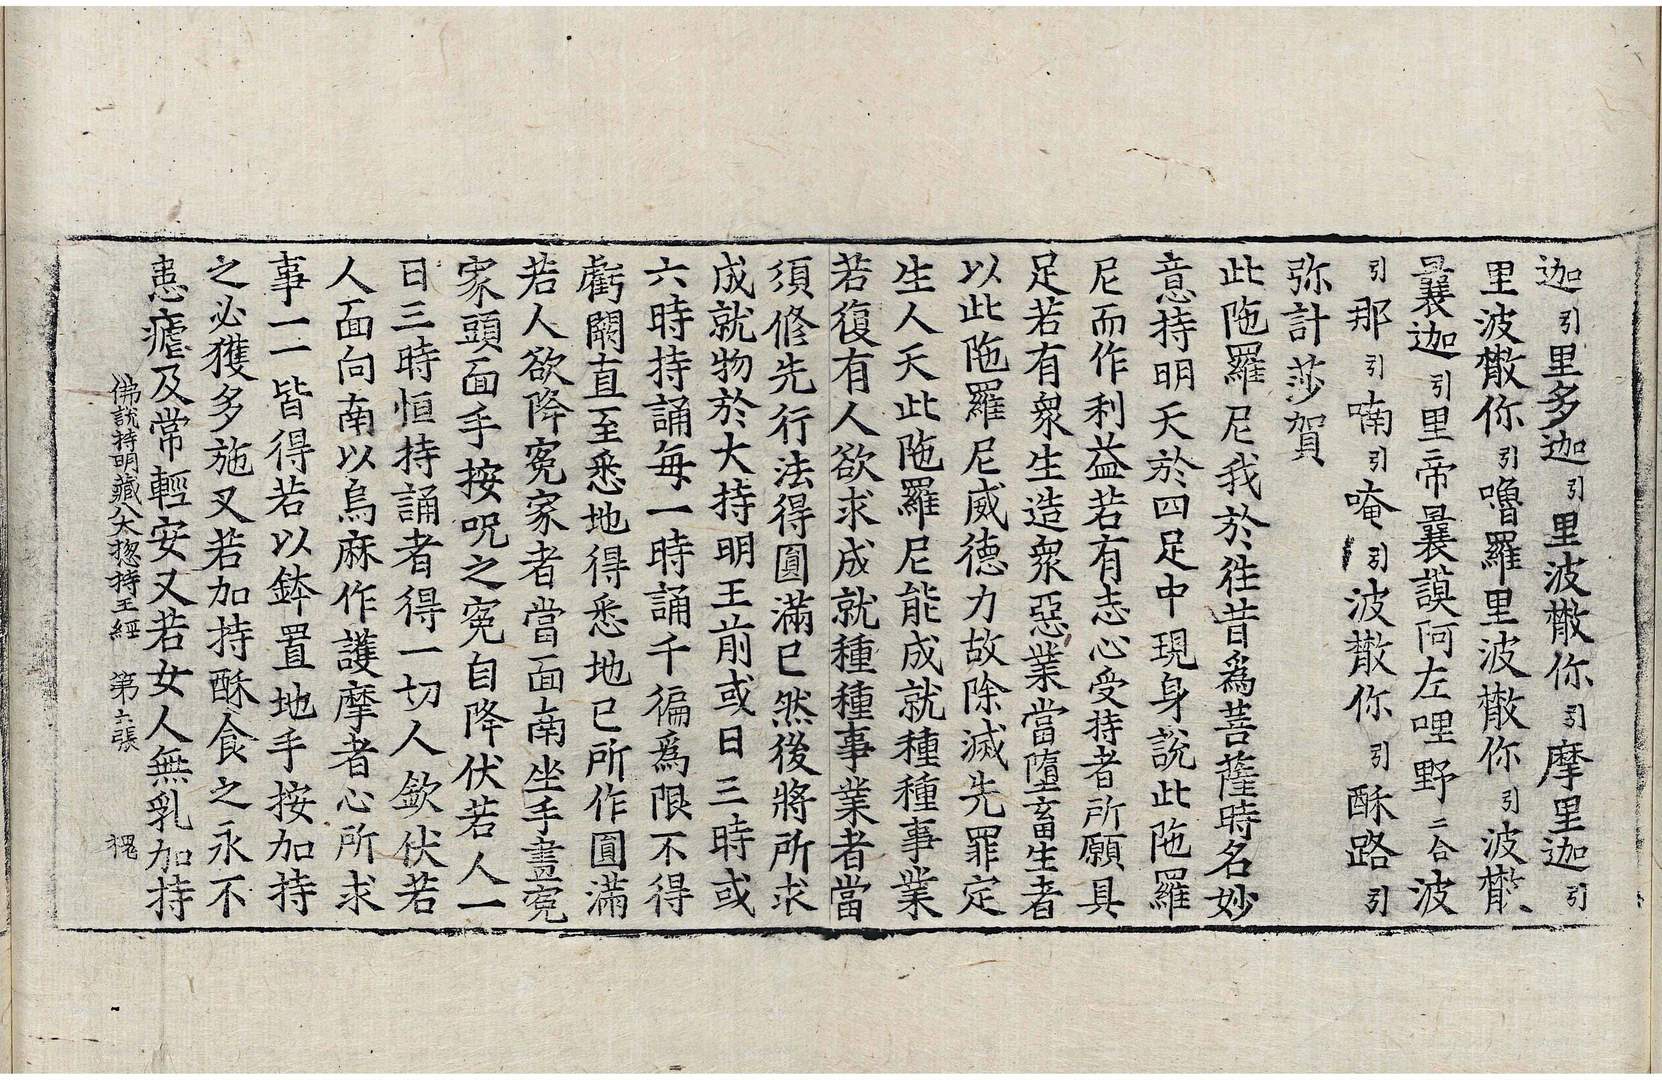 迦引里多迦引里波橵你引摩里迦引
里波橵你引嚕羅里波橵你引波橵
曩迦引里帝曩謨阿左哩野二合波
引那引喃引唵引波橵你引酥路引
弥計莎賀
此陁羅尼我於往昔爲菩薩時名妙
意持明天於四足中現身說此陁羅
尼而作利益若有志心受持者所願具
足若有衆生造衆惡業當墮畜生者
以此陁羅尼威德力故除滅先罪定
生人天此陁羅尼能成就種種事業
若復有人欲求成就種種事業者當
須修先行法得圓滿已然後將所求
成就物於大持明王前或日三時或
六時持誦每一時誦千徧爲限不得
虧闕直至悉地得悉地已所作圓滿
若人欲降寃家者當面南坐手畫寃
家頭面手按呪之寃自降伏若人一
日三時恒持誦者得一切人欽伏若
人面向南以烏麻作護摩者心所求
事一一皆得若以鉢置地手按加持
之必獲多施又若加持酥食之永不
患瘧及常輕安又若女人無乳加持
佛說持明藏八大揔持王經 第六張 槐